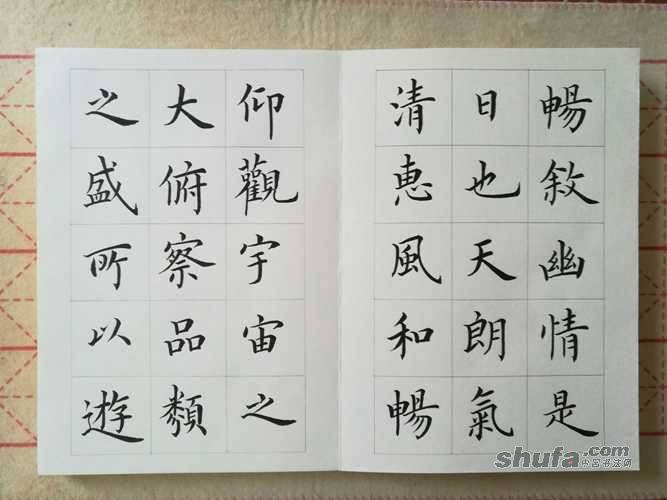 暢敘幽情是
日也天朗氣
清惠風和暢
仰觀宇宙之
大俯察品類
之盛所以遊
shufa.com
中国书法网